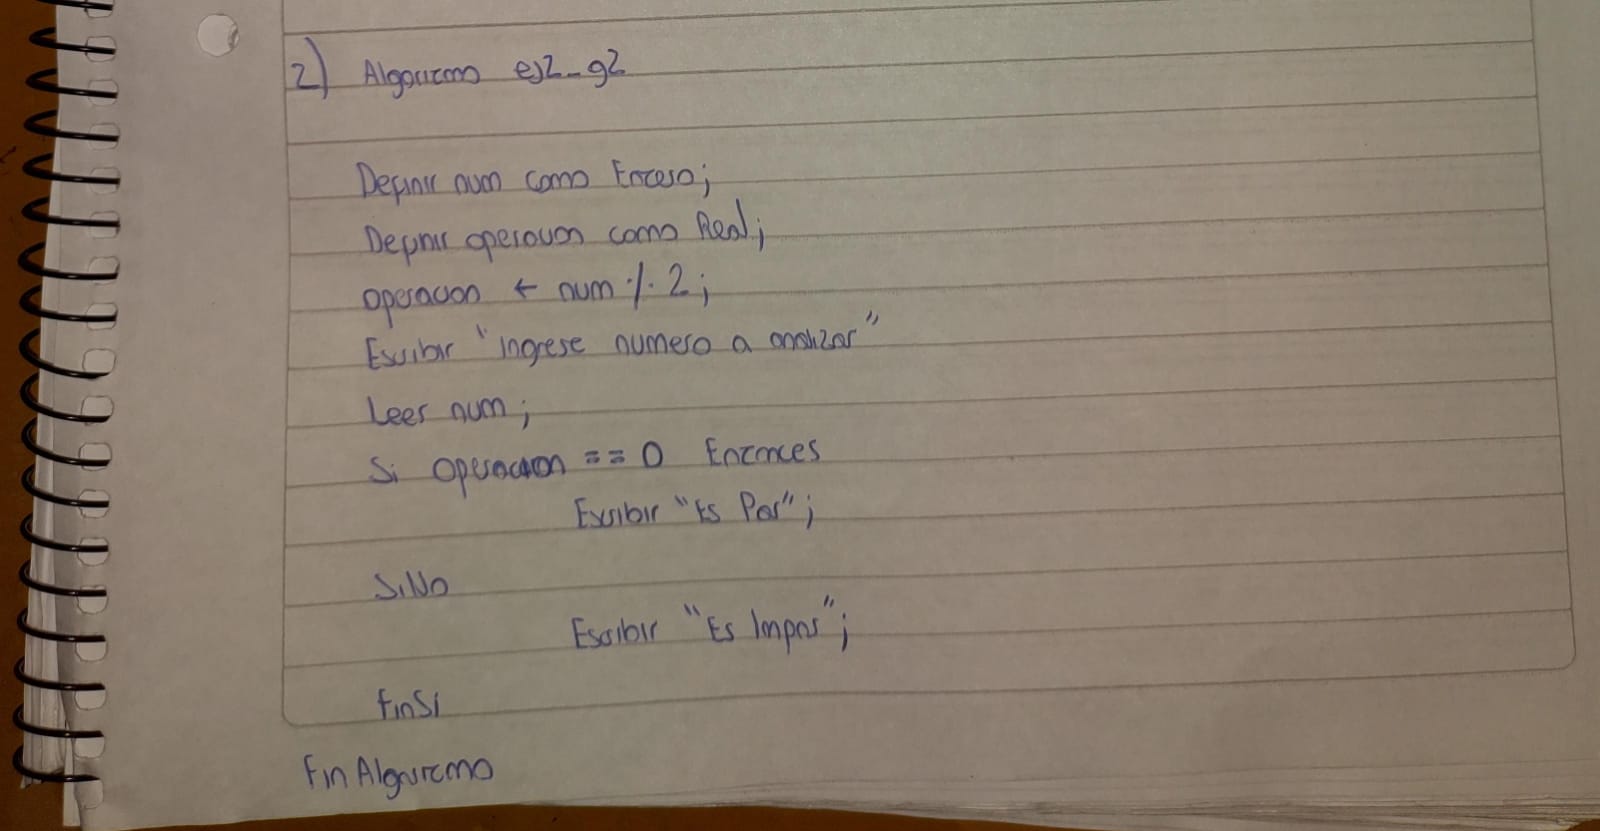 2) Algoritmo ej2_g2
Definir num como Entero;
Definir operacion como Real;
operacion ← num % 2;
Escribir "ingrese numero a analizar"
Leer num;
Si operacion == 0 Entonces
Escribir "Es Par";
SiNo
Escribir "Es Impar";
FinSi
Fin Algoritmo